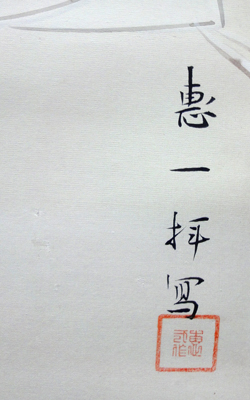 惠一拝写